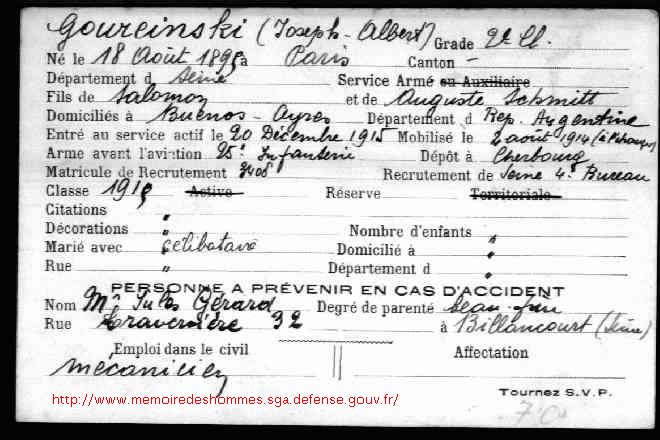 Goureinski (Joseph-Albert) Grade 2e Cl.
Né le 18 Août 1895 à Paris Canton -
Département d Seine Service Armé ou Auxiliaire
Fils de Salomon et de Auguste Schmitt
Domiciliés à Buenos-Ayres Département d Rep. Argentine
Entré au service actif le 20 Décembre 1915 Mobilisé le 2 août 1914
Arme avant l'aviation 25e Infanterie Dépôt à Cherbourg
Matricule de Recrutement 3408 Recrutement de Seine 4e Bureau
Classe 1915 Active Réserve Territoriale
Citations "
Décorations " Nombre d'enfants "
Marié avec célibataire Domicilié à "
Rue " Département d "
PERSONNE A PRÉVENIR EN CAS D'ACCIDENT
Nom Mr Jules Gérard Degré de parenté beau-frère
Rue Traversière 32 à Billancourt (Seine)
Emploi dans le civil || Affectation
mécanicien
Tournez S.V.P.
http://www.memoiredeshommes.sga.defense.gouv.fr/